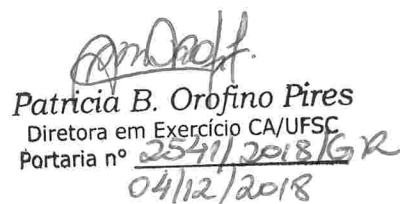 Patricia B. Orofino Pires
Diretora em Exercício CA/UFSC
Portaria nº 2541/2018/GR
04/12/2018